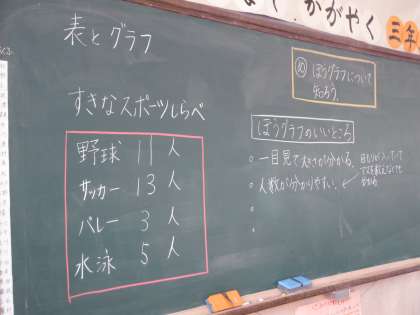 かがやく 三年
表とグラフ
め ぼうグラフについて
知ろう。
すきなスポーツしらべ
野球 11 人
サッカー 13 人
バレー 3 人
水泳 5 人
ぼうグラフのいいところ
○一目見て大きさが分かる。
○人数が分かりやすい。
目もりがついていて